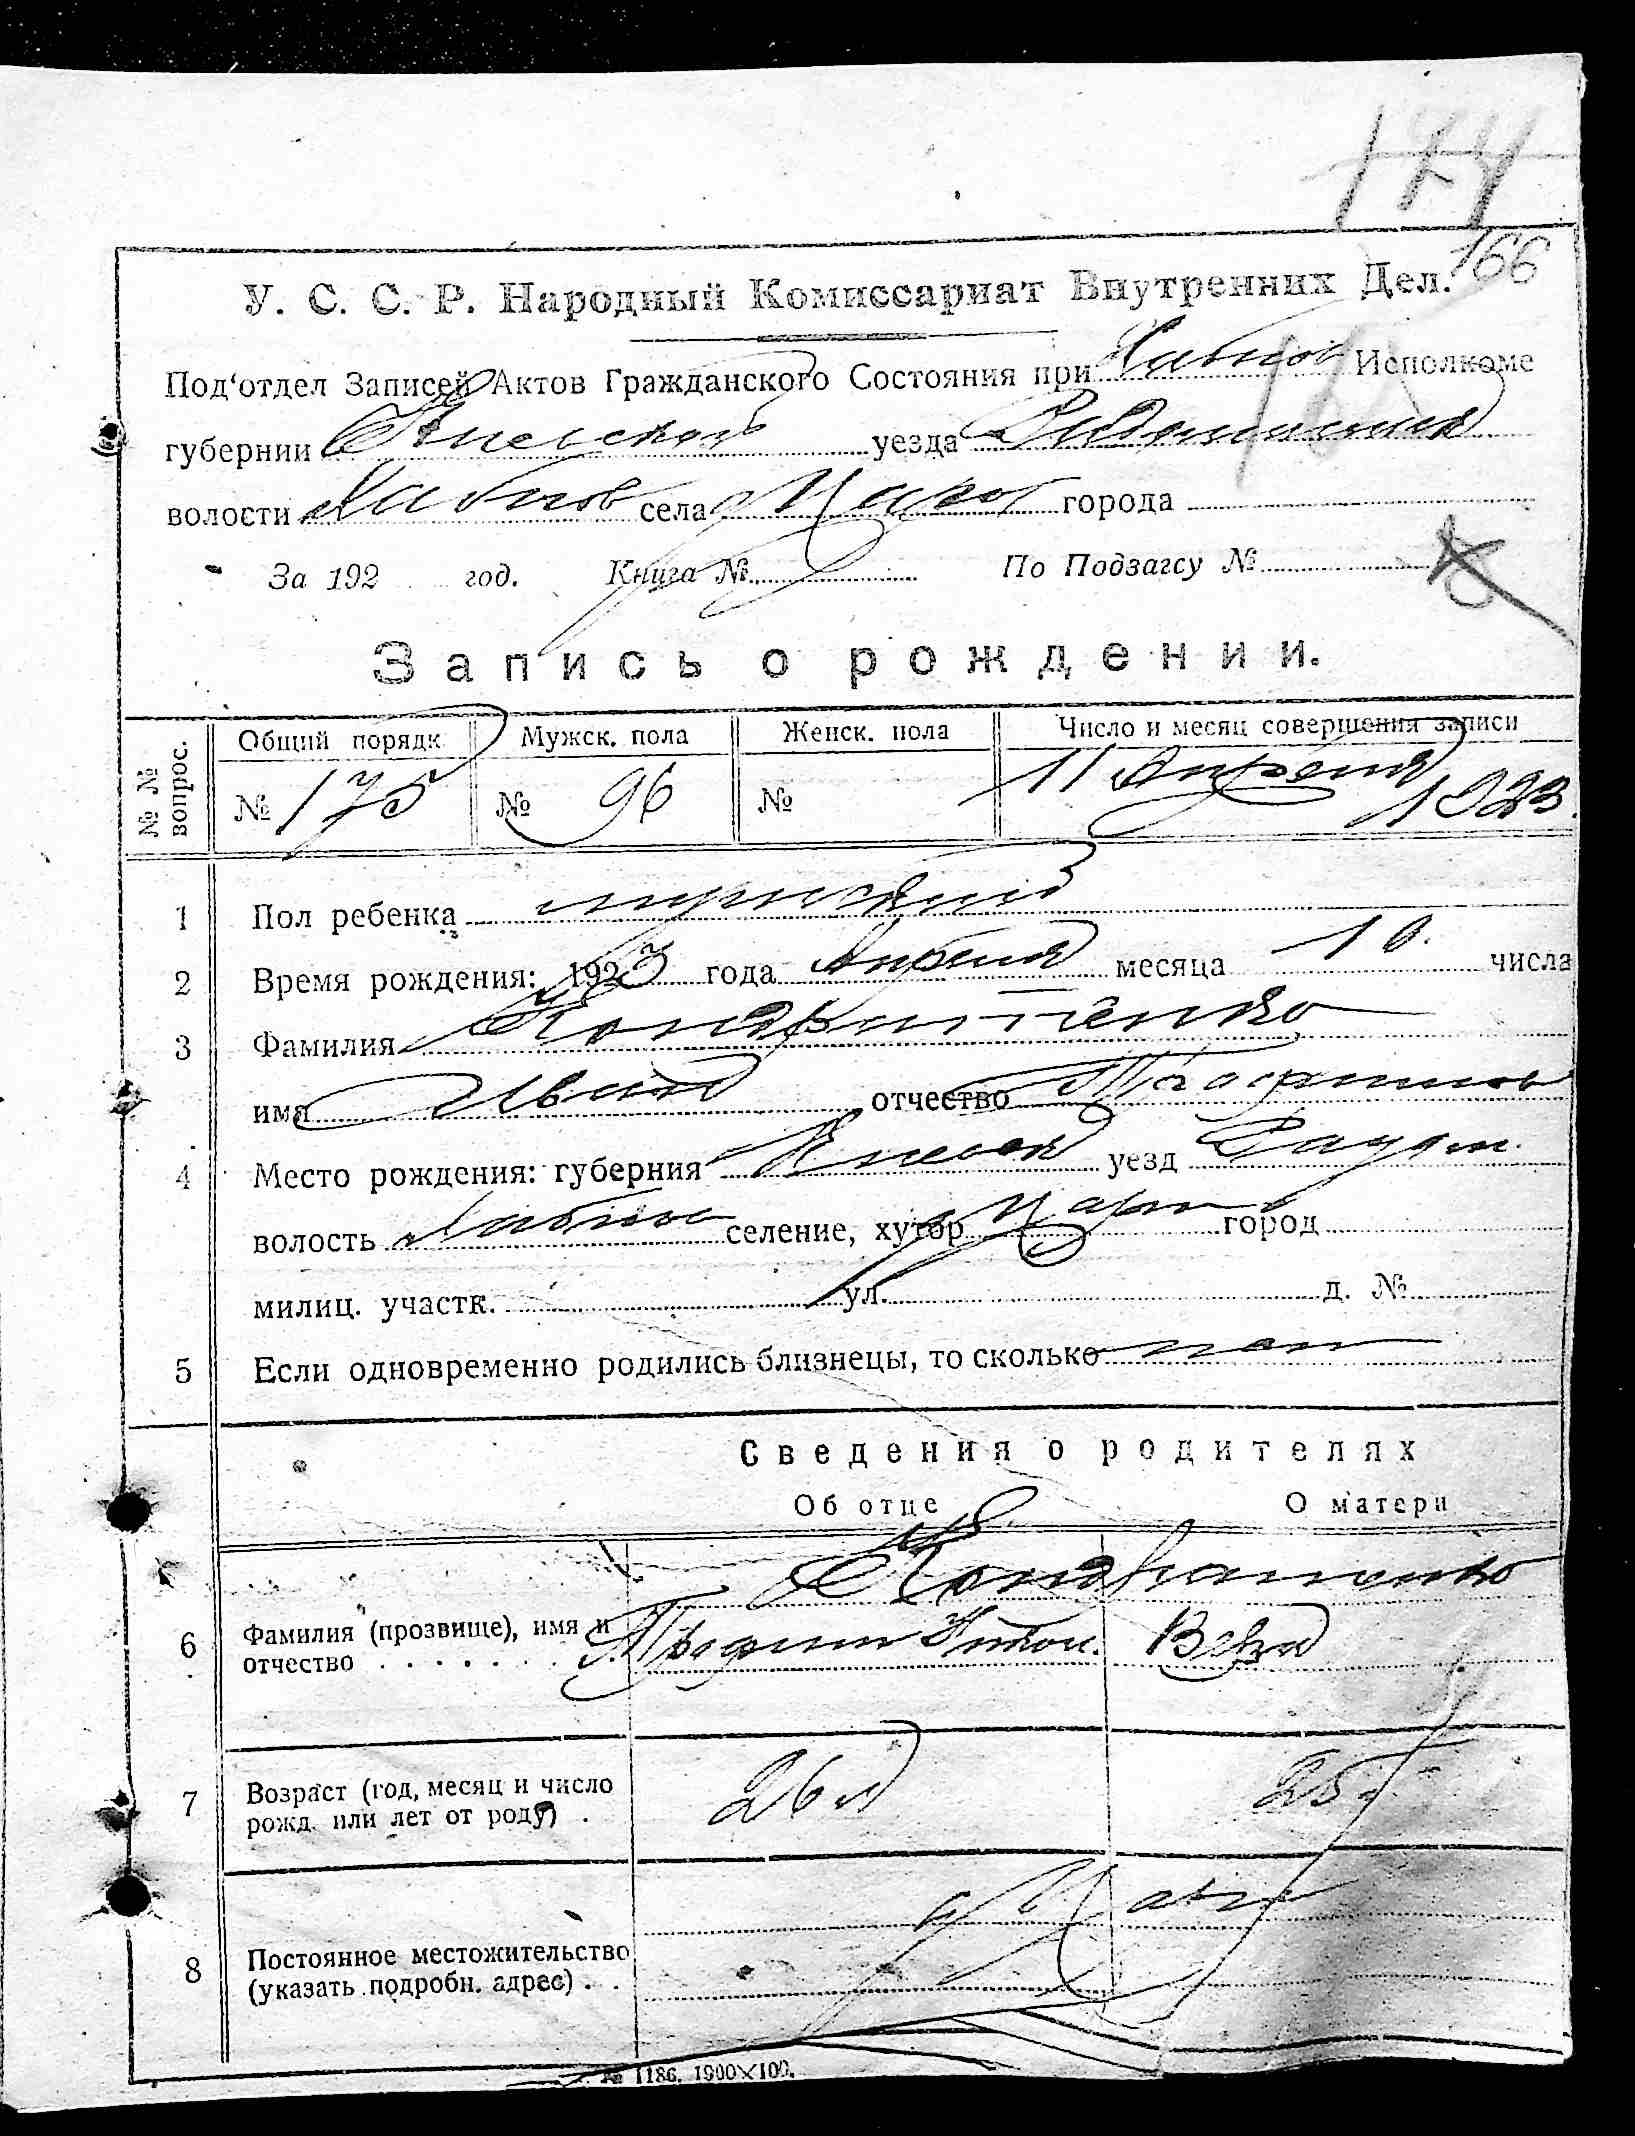 174
166
У. С. С. Р. Народный Комиссариат Внутренних Дел.
Под'отдел Записей Актов Гражданского Состояния при Хабнов Исполкоме
губернии Киевской уезда
волости Хабнов села города
За 192 год. Книга № По Подзагсу №
Запись о рождении.
№ № вопрос. Общий порядк. Мужск. пола Женск. пола Число и месяц совершения записи
№ 175 № 96 № 11 Апреля 1923
1 Пол ребенка мужской
2 Время рождения: 1923 года Апреля месяца 10. числа
3 Фамилия Кондратенко
имя Иван отчество Трофимов
4 Место рождения: губерния Киевск уезд
волость Хабнов селение, хутор город
милиц. участк. ул. д. №
5 Если одновременно родились близнецы, то сколько
Сведения о родителях
Об отце О матери
Кондратенко
6 Фамилия (прозвище), имя и отчество Трофим Антон. Вера
7 Возраст (год, месяц и число рожд. или лет от роду) 26 л 25
8 Постоянное местожительство (указать подробн. адрес)
№ 1186. 1900×100.